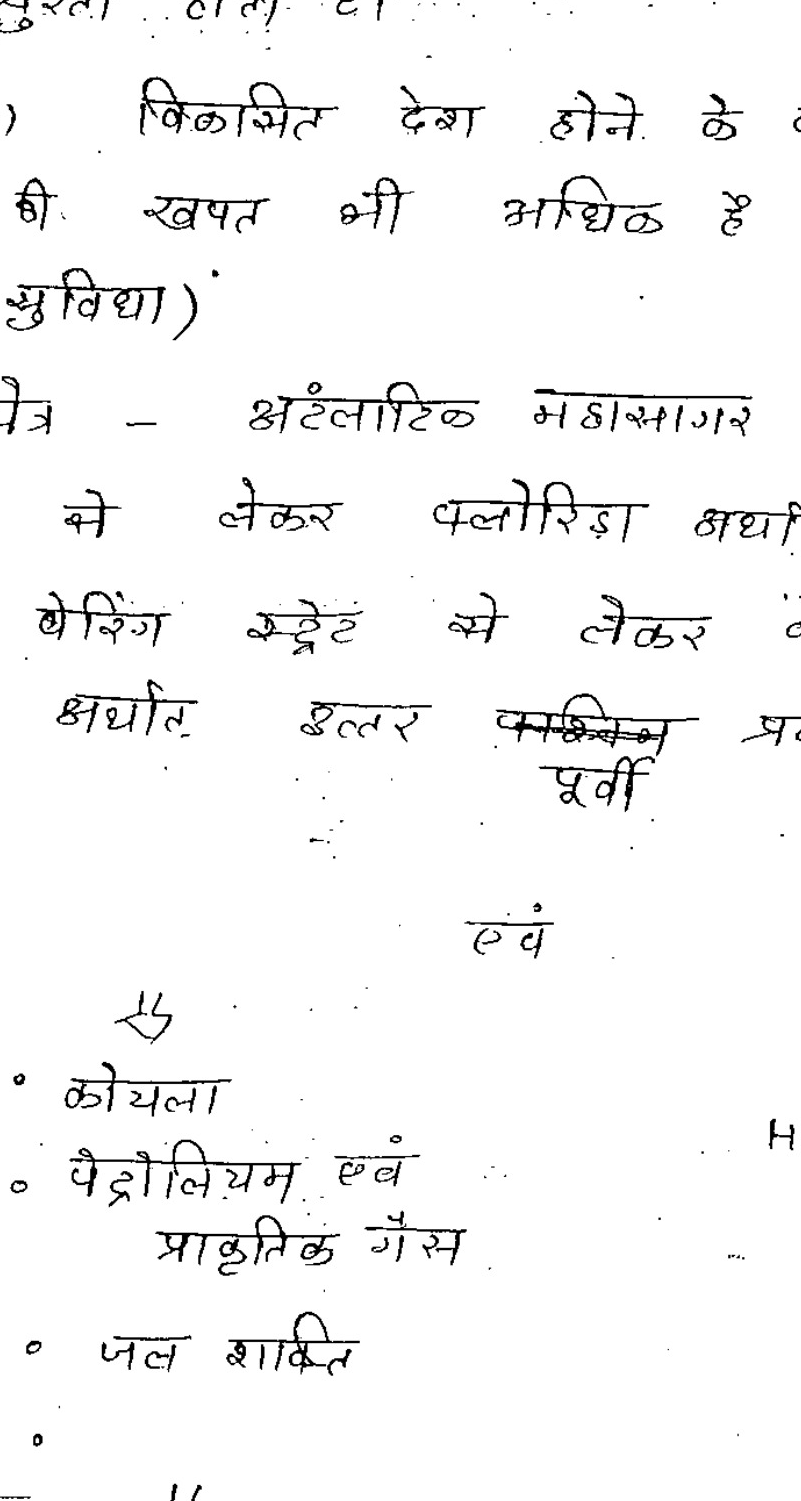 ) विकासित देश होने के
की खपत भी अधिक है
सुविधा)
- अटंलाटिक महासागर
से लेकर फ्लोरिडा
बेरिंग स्ट्रेट से लेकर
अर्थात उत्तर पूर्वी
एवं
• कोयला
• पेट्रोलियम एवं
प्राकृतिक गैस
• जल शक्ति